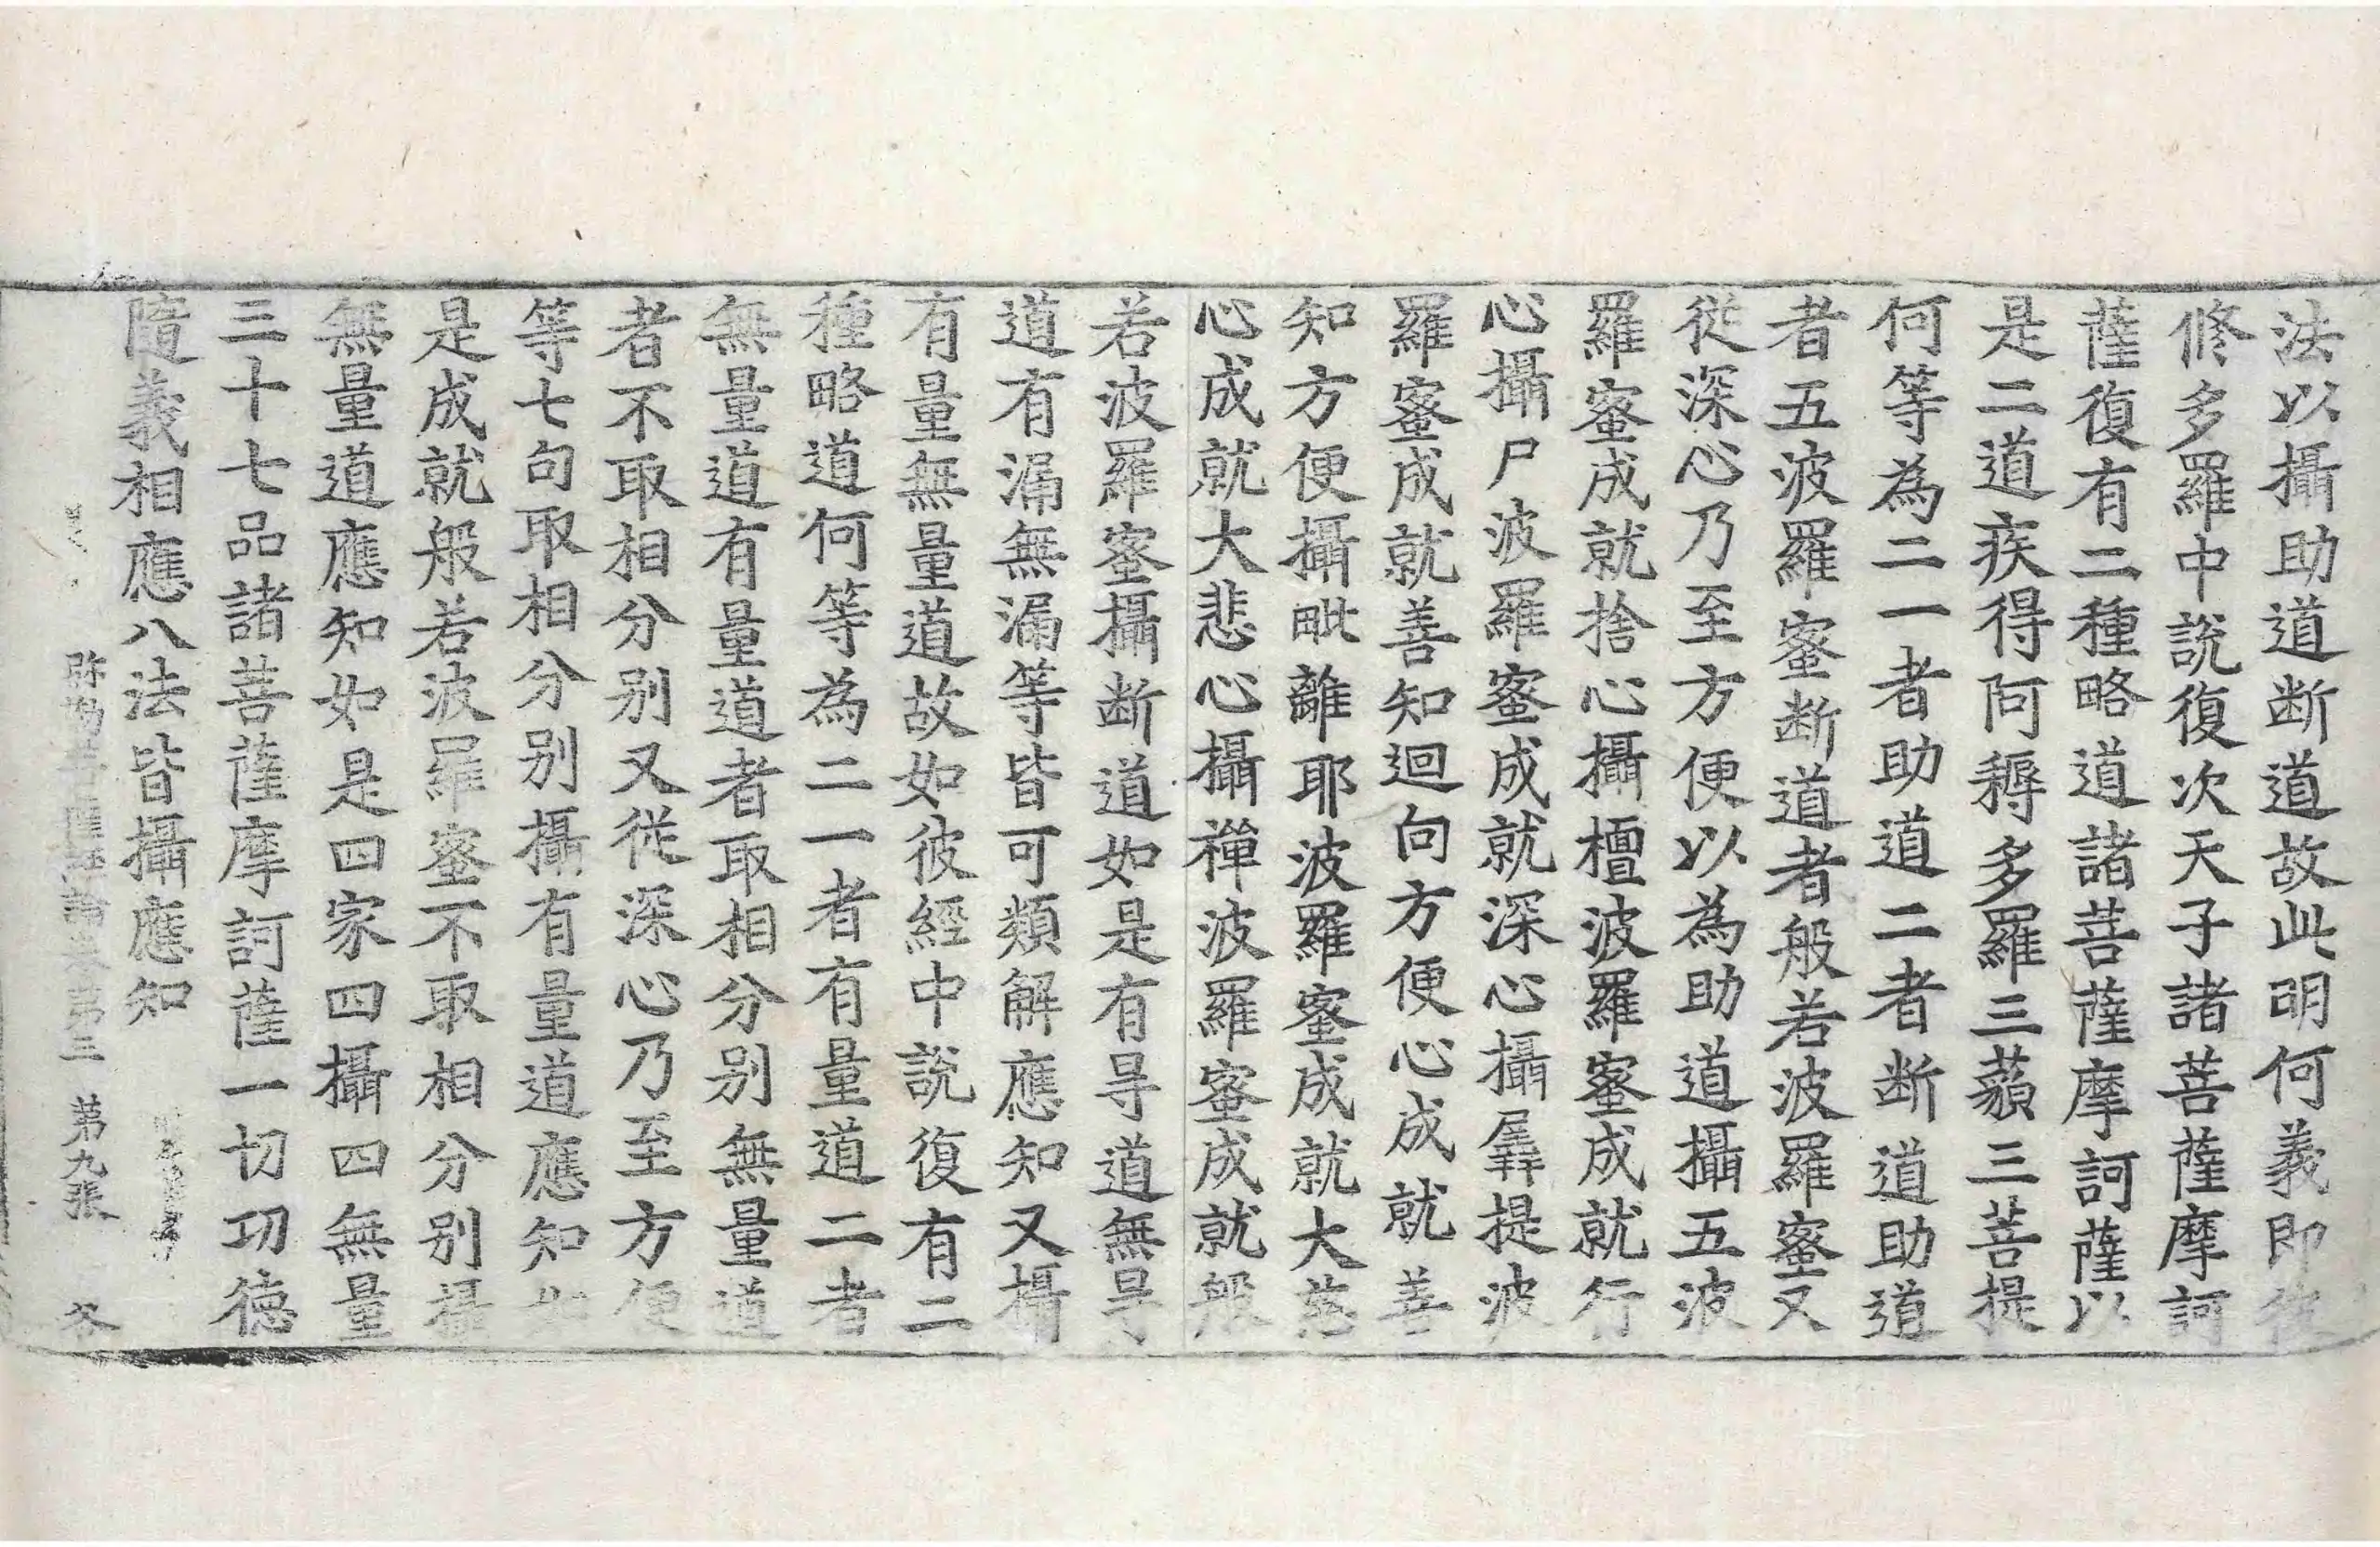 法以攝助道断道故此明何義即彼
修多羅中說復次天子諸菩薩摩訶
薩復有二種略道諸菩薩摩訶薩以
是二道疾得阿耨多羅三藐三菩提
何等為二一者助道二者断道助道
者五波羅蜜断道者般若波羅蜜又
従深心乃至方便以為助道攝五波
羅蜜成就捨心攝檀波羅蜜成就行
心攝尸波羅蜜成就深心攝羼提波
羅蜜成就善知迴向方便心成就善
知方便攝毗離耶波羅蜜成就大慈
心成就大悲心攝禪波羅蜜成就般
若波羅蜜攝断道如是有㝵道無㝵
道有漏無漏等皆可類解應知又攝
有量無量道故如彼經中說復有二
種略道何等為二一者有量道二者
無量道有量道者取相分別無量道
者不取相分別又従深心乃至方便
等七句取相分別攝有量道應知如
是成就般若波羅蜜不取相分別攝
無量道應知如是四家四攝四無量
三十七品諸菩薩摩訶薩一切功德
隨義相應八法皆攝應知
弥勒菩薩經論卷第三 第九張